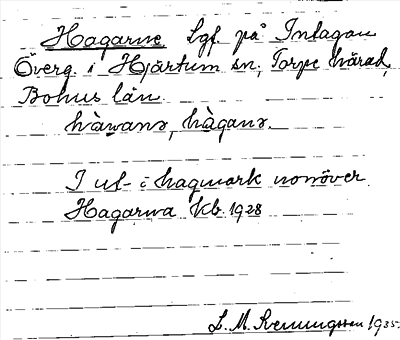 Hagarne Lgf. på Intagan
Överg. i Hjärtum sn, Torpe härad,
Bohus län.
hàwanə, hàganə.
I ut- i hagmark norröver
Hagarna Kb. 1928
L. M. Svenungsson 1935.